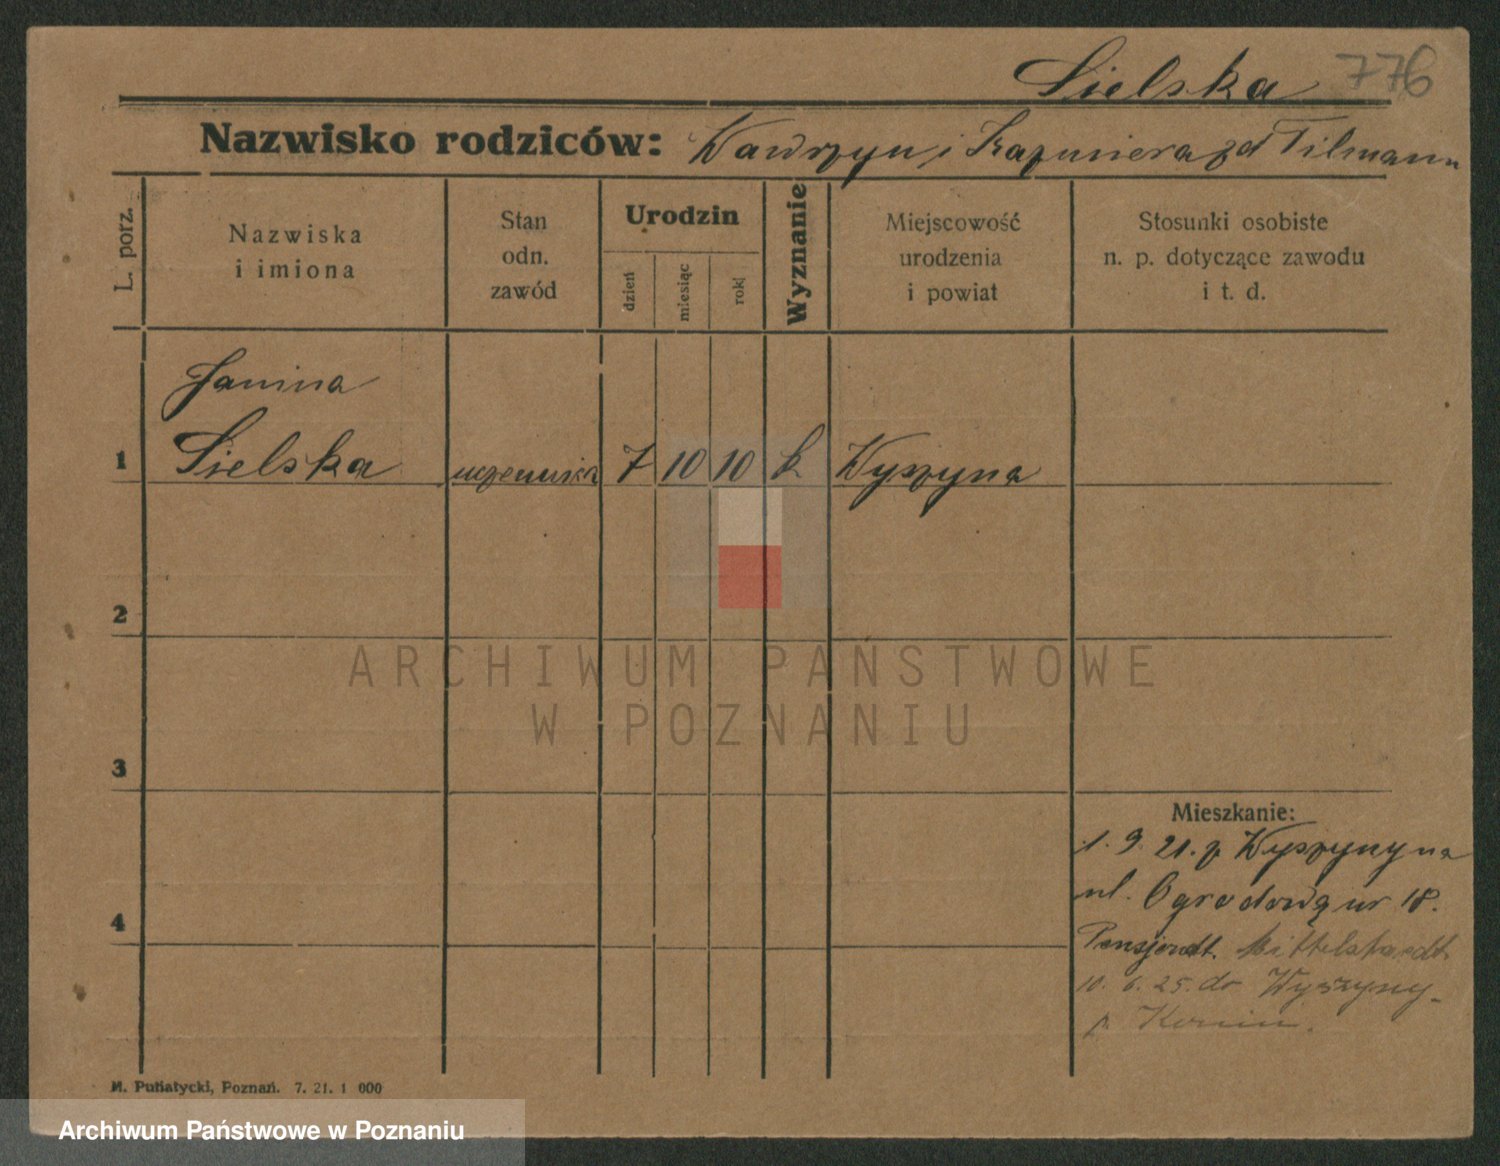 Sielska 776
Nazwisko rodziców: Wawrzyn i Kazimiera zd Tilmann
L. porz.
Nazwiska
i imiona
Stan
odn.
zawód
Urodzin
dzień
miesiąc
rok
Wyznanie
Miejscowość
urodzenia
i powiat
Stosunki osobiste
n. p. dotyczące zawodu
i t. d.
Janina
1 Sielska uczennica 7 10 10 k Wyszyna
2
ARCHIWUM PAŃSTWOWE
W POZNANIU
3
Mieszkanie:
1. 9. 21. z Wyszyny na
ul. Ogrodową nr 18.
4
Pensjonat. Mittelstaedt
10. 6. 25. do Wyszyny
p. Konin.
M. Putiatycki, Poznań. 7. 21. 1 000
Archiwum Państwowe w Poznaniu